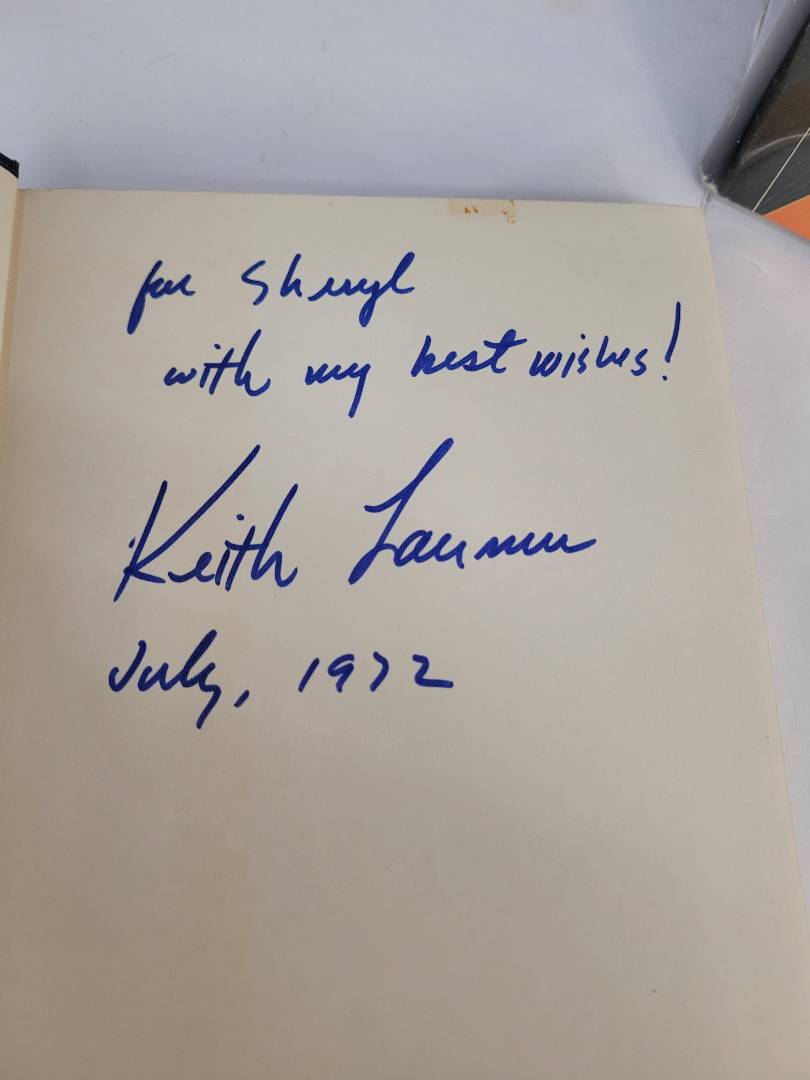 for Sheryl
with my best wishes!
Keith
July, 1972